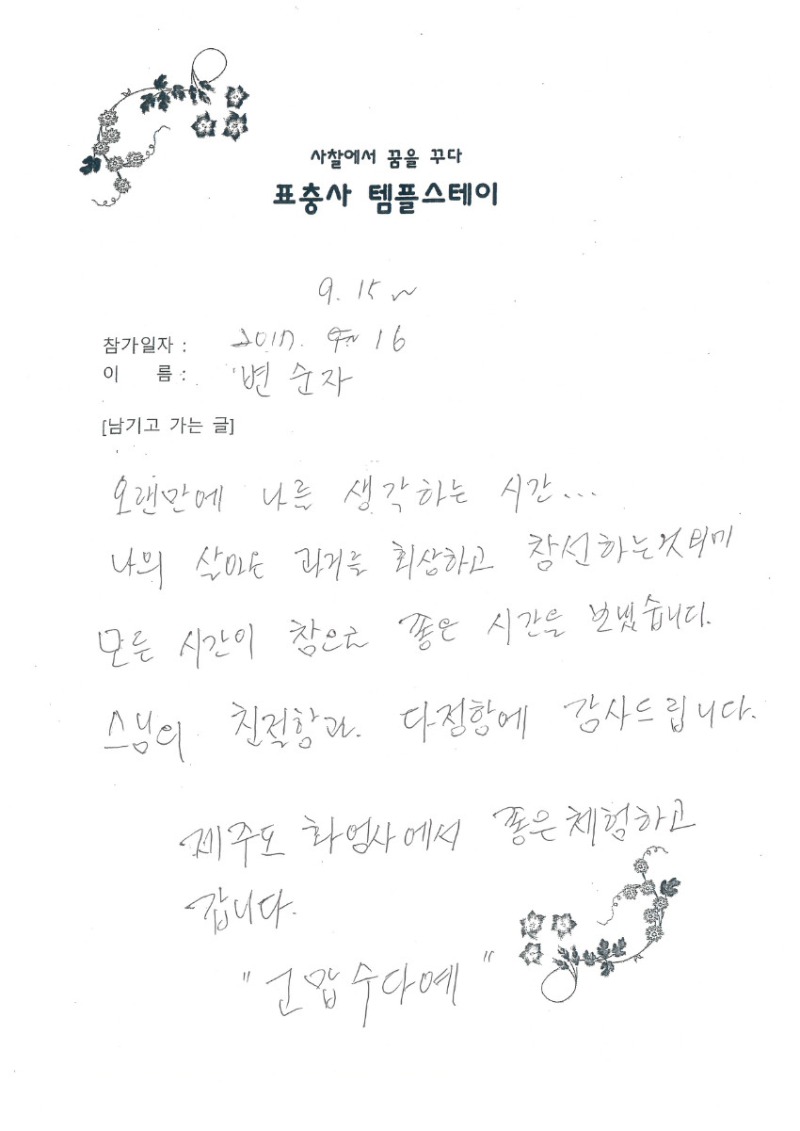 사찰에서 꿈을 꾸다
표충사 템플스테이
9. 15 ~
참가일자 : 2017. 9~ 16
이 름 : 변 순자
[남기고 가는 글]
오랜만에 나를 생각하는 시간...
나의 살아온 과거를 회상하고 참선하는
모든 시간이 참으로 좋은 시간을 보냈습니다.
스님의 친절함과. 다정함에 감사드립니다.
제주도 화엄사에서 좋은 체험하고
갑니다.
"고맙수다예"